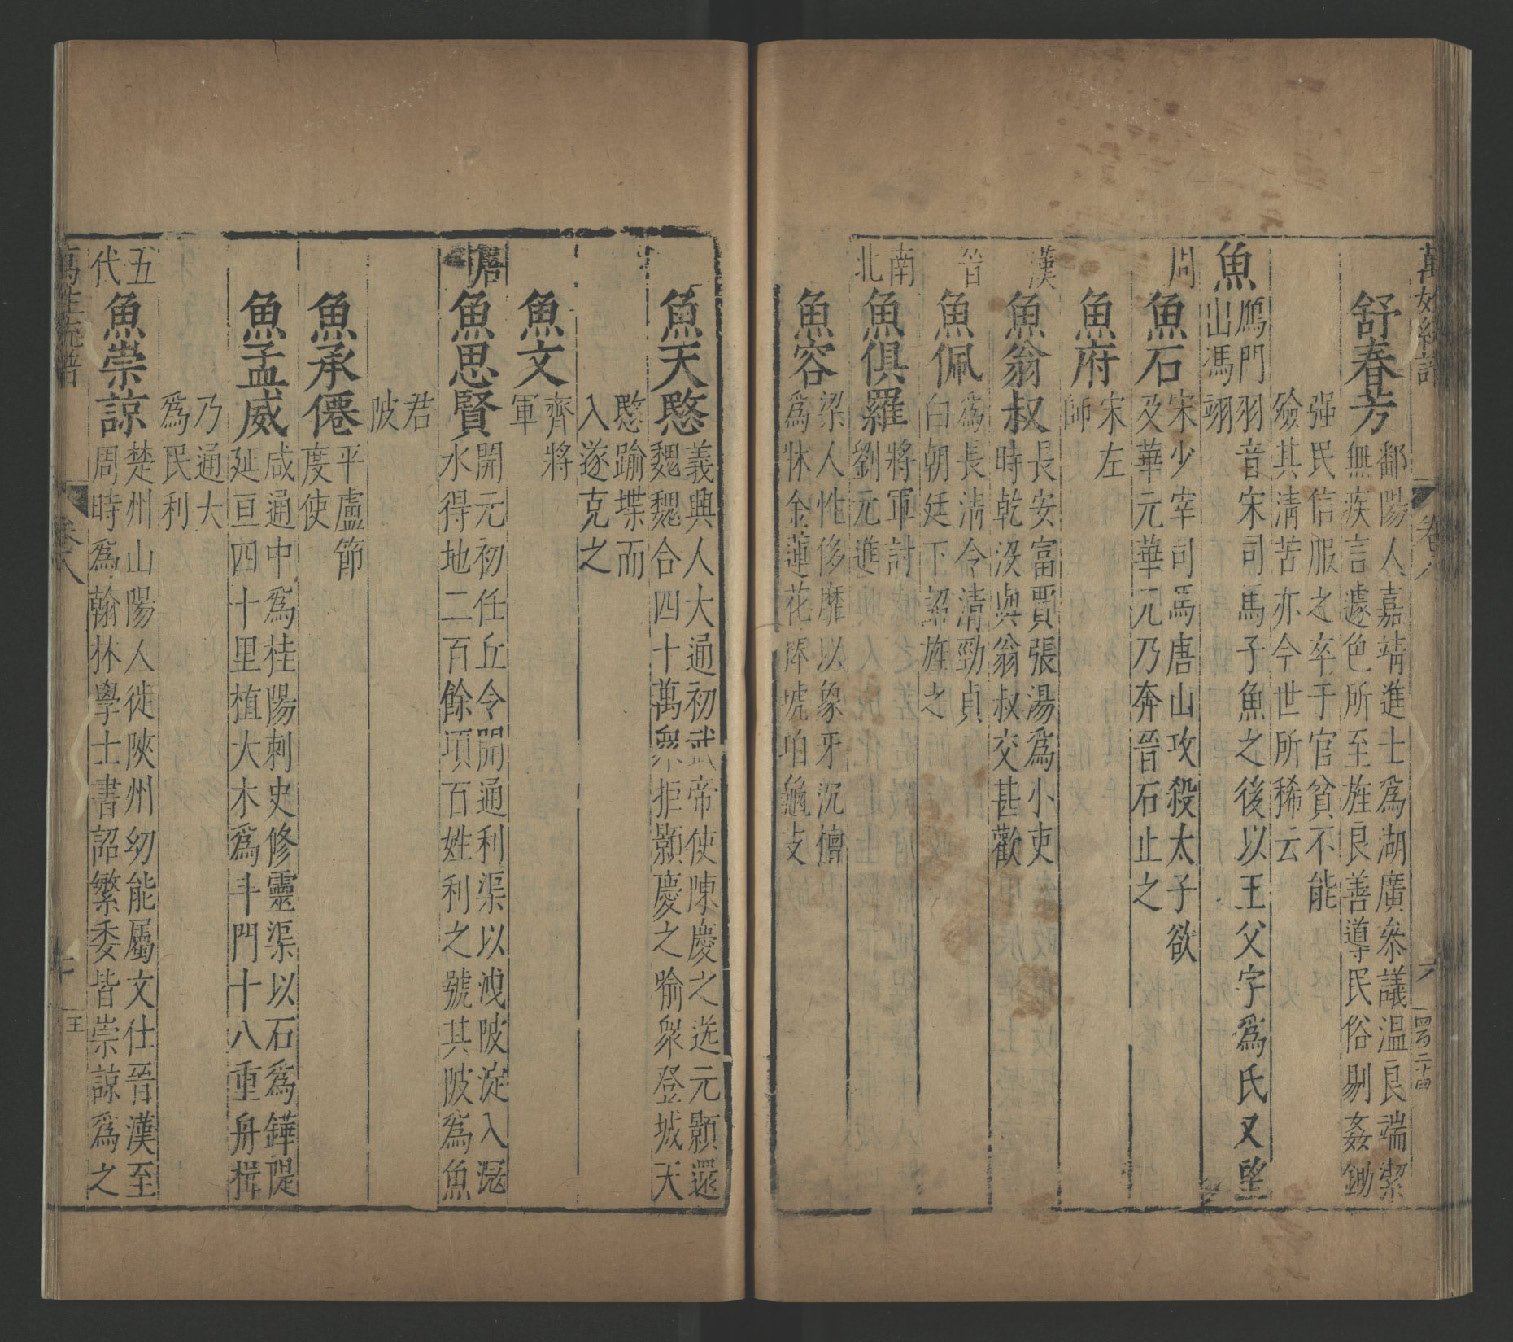 萬姓統譜
卷八
六
舒春芳
鄱陽人嘉靖進士爲湖廣叅議温良端潔
無疾言遽色所至旌良善導民俗剔姦鋤
强民信服之卒于官貧不能
殮其清苦亦今世所稀云
魚
鴈門羽音宋司馬子魚之後以王父字爲氏又望
出馮翊
周
魚石
宋少宰司馬唐山攻殺太子欲
及華元華元乃奔晉石止之
魚府
宋左
師
漢
魚翁叔
長安富賈張湯爲小吏
時乾沒與翁叔交甚歡
晉
魚佩
爲長清令清勁貞
白朝廷下詔旌之
南
北
魚俱羅
將軍討
劉元進
魚容
梁人性侈靡以象牙沉檀
爲牀金蓮花捧琥珀龜支
魚天愍
義興人大通初武帝使陳慶之送元顥還
魏魏合四十萬衆拒顥慶之喻衆登城天
愍踰堞而
入遂克之
魚文
齊將
軍
唐
魚思賢
開元初任丘令開通利渠以洩陂淀入滱
水得地二百餘項百姓利之號其陂爲魚
君
陂
魚承僊
平盧節
度使
魚孟威
咸通中爲桂陽刺史修靈渠以石爲鏵隄
延亘四十里植大木爲斗門十八重舟揖
乃通大
爲民利
五
代
魚崇諒
楚州山陽人徙陝州幼能屬文仕晉漢至
周時爲翰林學士書詔繁委皆崇諒爲之
萬姓統譜
卷八
七